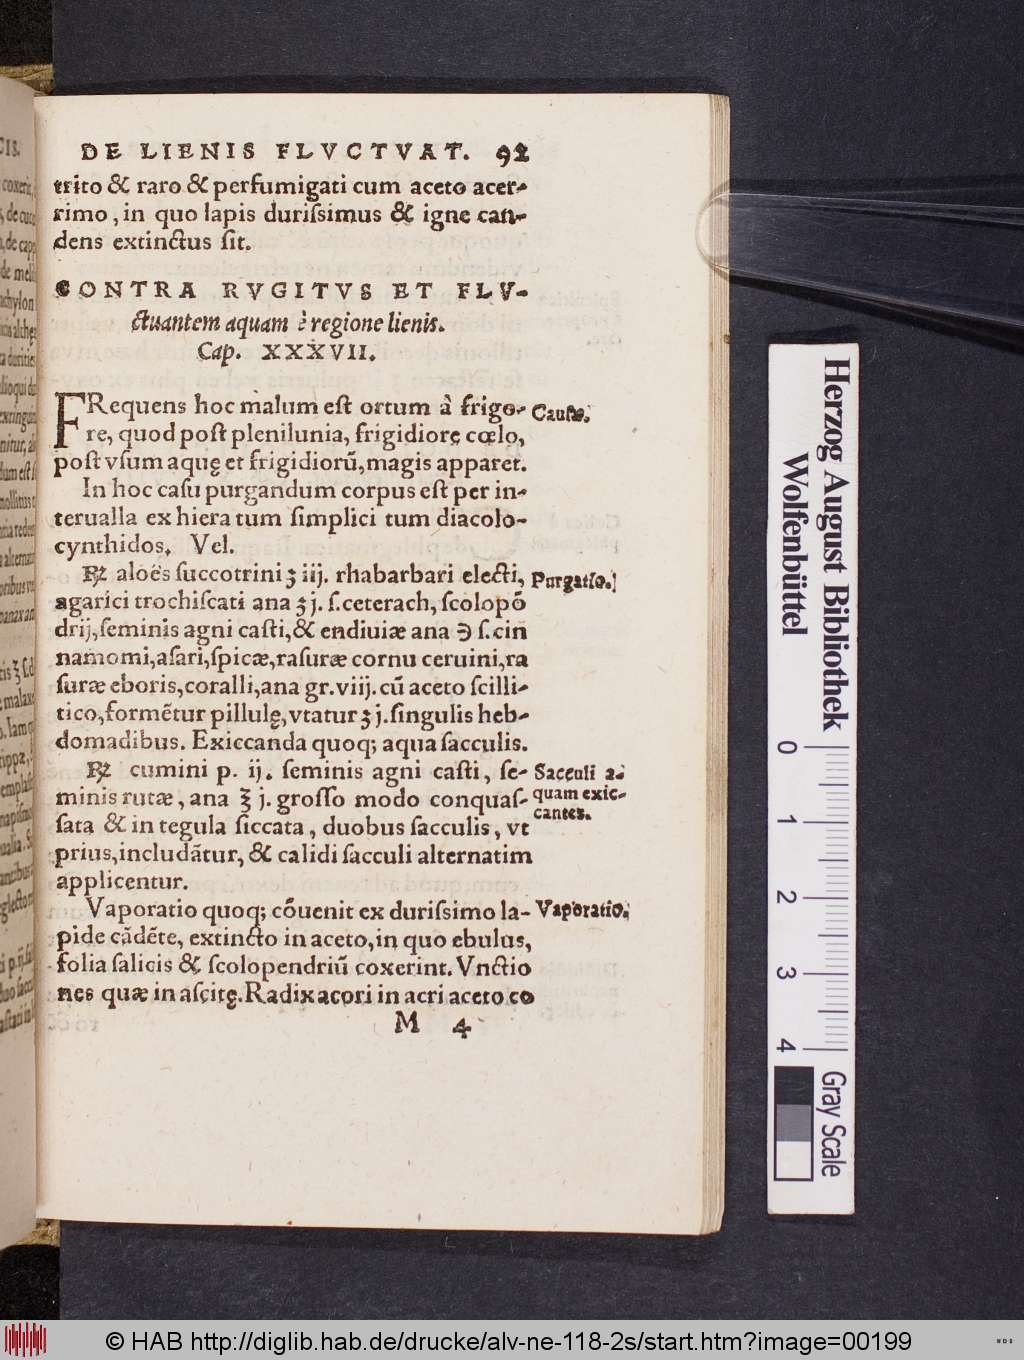 DE LIENIS FLVCTVAT. 92
trito & raro & perfumigati cum aceto acer-
rimo, in quo lapis duriſsimus & igne can-
dens extinctus ſit.
CONTRA RVGITVS ET FLV-
ctuantem aquam è regione lienis.
Cap. XXXVII.
FRequens hoc malum eſt ortum à frigo-
re, quod poſt plenilunia, frigidiore cœlo,
poſt vſum aquę et frigidiorũ, magis apparet.
Cauſæ.
In hoc caſu purgandum corpus eſt per in-
terualla ex hiera tum ſimplici tum diacolo-
cynthidos. Vel.
℞ aloës ſuccotrini ʒ iij. rhabarbari electi,
agarici trochiſcati ana ʒ j. ſ. ceterach, ſcolopõ
drij, ſeminis agni caſti, & endiuiæ ana ℈ ſ. cin
namomi, aſari, ſpicæ, raſuræ cornu ceruini, ra
ſuræ eboris, coralli, ana gr. viij. cũ aceto ſcilli-
tico, formẽtur pillulę, vtatur ʒ j. ſingulis heb-
domadibus. Exiccanda quoq; aqua ſacculis.
Purgatio.
℞ cumini p. ij. ſeminis agni caſti, ſe-
minis rutæ, ana ℥ j. groſſo modo conquaſ-
ſata & in tegula ſiccata, duobus ſacculis, vt
prius, includãtur, & calidi ſacculi alternatim
applicentur.
Sacculi a-
quam exic-
cantes.
Vaporatio quoq; cõuenit ex duriſsimo la-
pide cãdẽte, extincto in aceto, in quo ebulus,
folia ſalicis & ſcolopendriũ coxerint. Vnctio
nes quæ in aſcitę. Radix acori in acri aceto co
Vaporatio.
M 4
Herzog August Bibliothek
Wolfenbüttel
0 1 2 3 4
Gray Scale
© HAB http://diglib.hab.de/drucke/alv-ne-118-2s/start.htm?image=00199